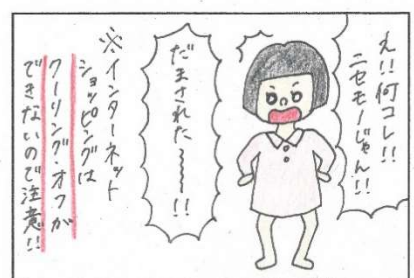 え!!何コレ!!
ニセモノじゃん!!
だまされた〜〜!!
※インターネット
ショッピングは
クーリング・オフが
できないので注意!!